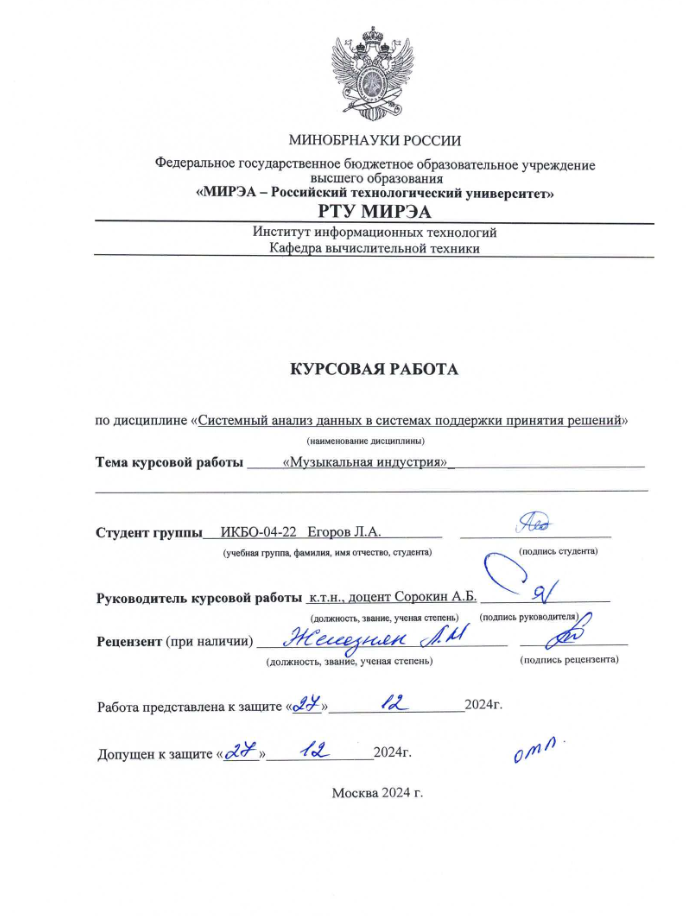 МИНОБРНАУКИ РОССИИ
Федеральное государственное бюджетное образовательное учреждение
высшего образования
«МИРЭА – Российский технологический университет»
РТУ МИРЭА
Институт информационных технологий
Кафедра вычислительной техники
КУРСОВАЯ РАБОТА
по дисциплине «Системный анализ данных в системах поддержки принятия решений»
(наименование дисциплины)
Тема курсовой работы «Музыкальная индустрия»
Студент группы ИКБО-04-22 Егоров Л.А.
(учебная группа, фамилия, имя отчество, студента) (подпись студента)
Руководитель курсовой работы к.т.н., доцент Сорокин А.Б.
(должность, звание, ученая степень) (подпись руководителя)
Рецензент (при наличии) Железняк Л.М
(должность, звание, ученая степень) (подпись рецензента)
Работа представлена к защите «27» 12 2024г.
Допущен к защите «27» 12 2024г.
отл.
Москва 2024 г.